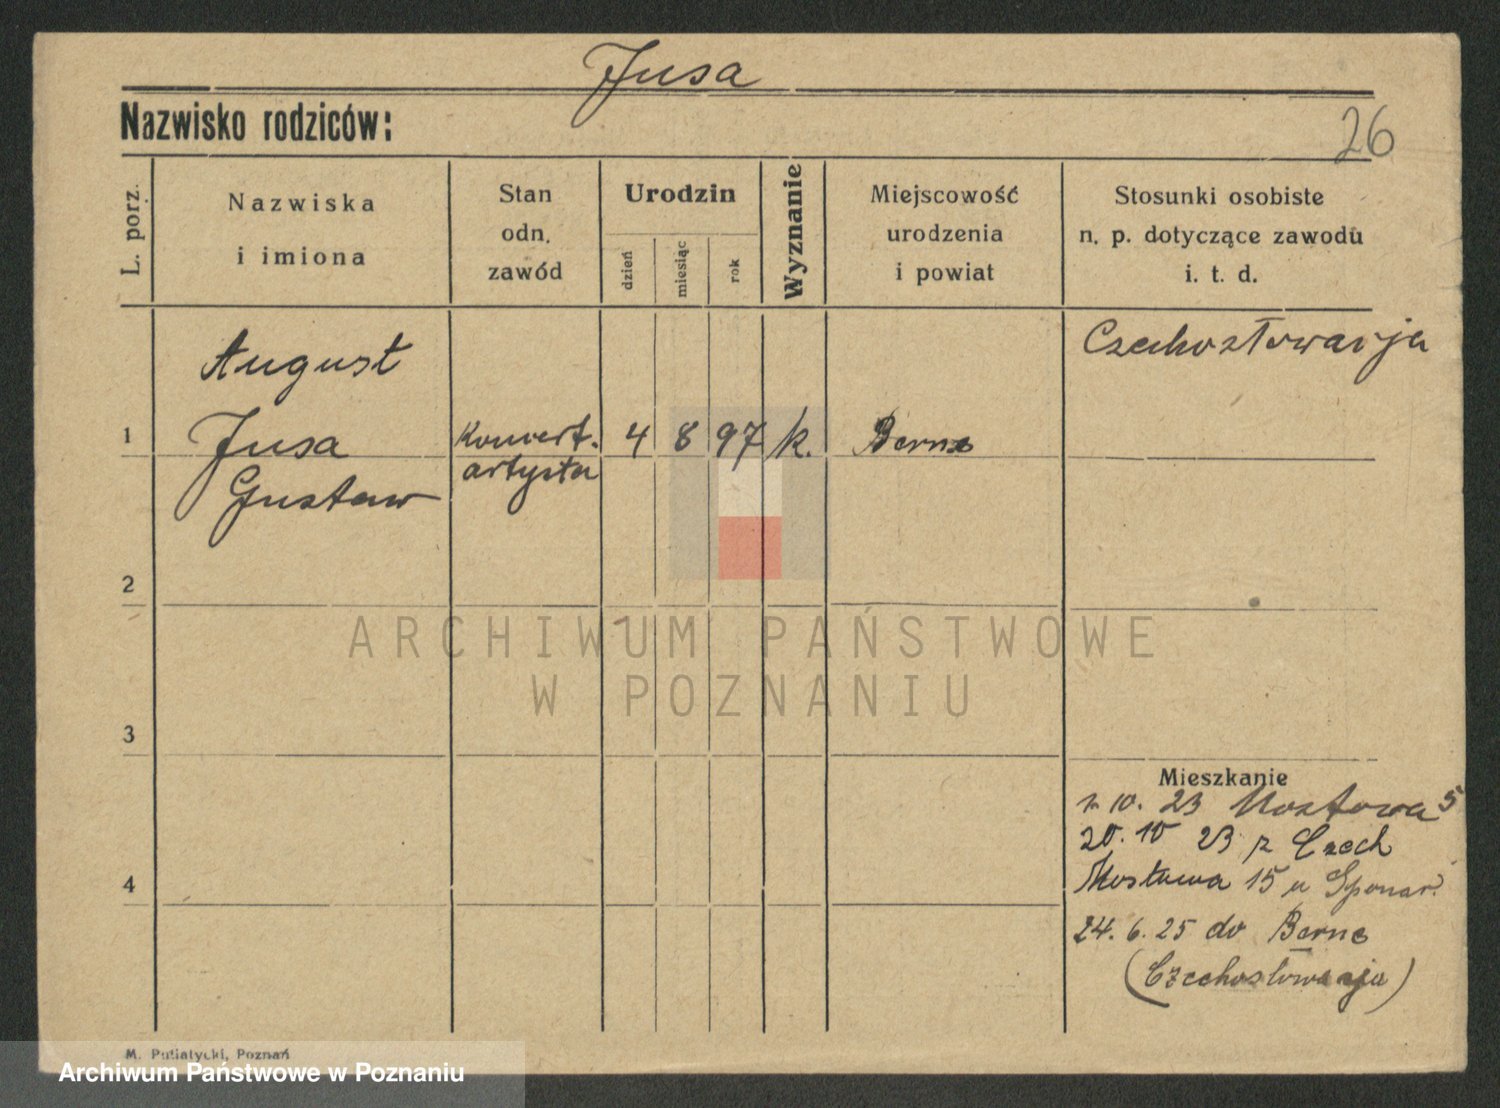 Jusa
Nazwisko rodziców:
26
L. porz.
Nazwiska
i imiona
Stan
odn.
zawód
Urodzin
dzień
miesiąc
rok
Wyznanie
Miejscowość
urodzenia
i powiat
Stosunki osobiste
n. p. dotyczące zawodu
i. t. d.
Czechosłowacja
August
1 Jusa Koncert. 4 8 97 k. Berno
Gustaw artysta
2
ARCHIWUM PAŃSTWOWE
W POZNANIU
3
Mieszkanie
10. 23 Mostowa 5
20. 10 23 z Czech
4
Mostowa 15 u
24. 6. 25 do Berno
(Czechosłowacja)
M. Putiatycki, Poznań
Archiwum Państwowe w Poznaniu